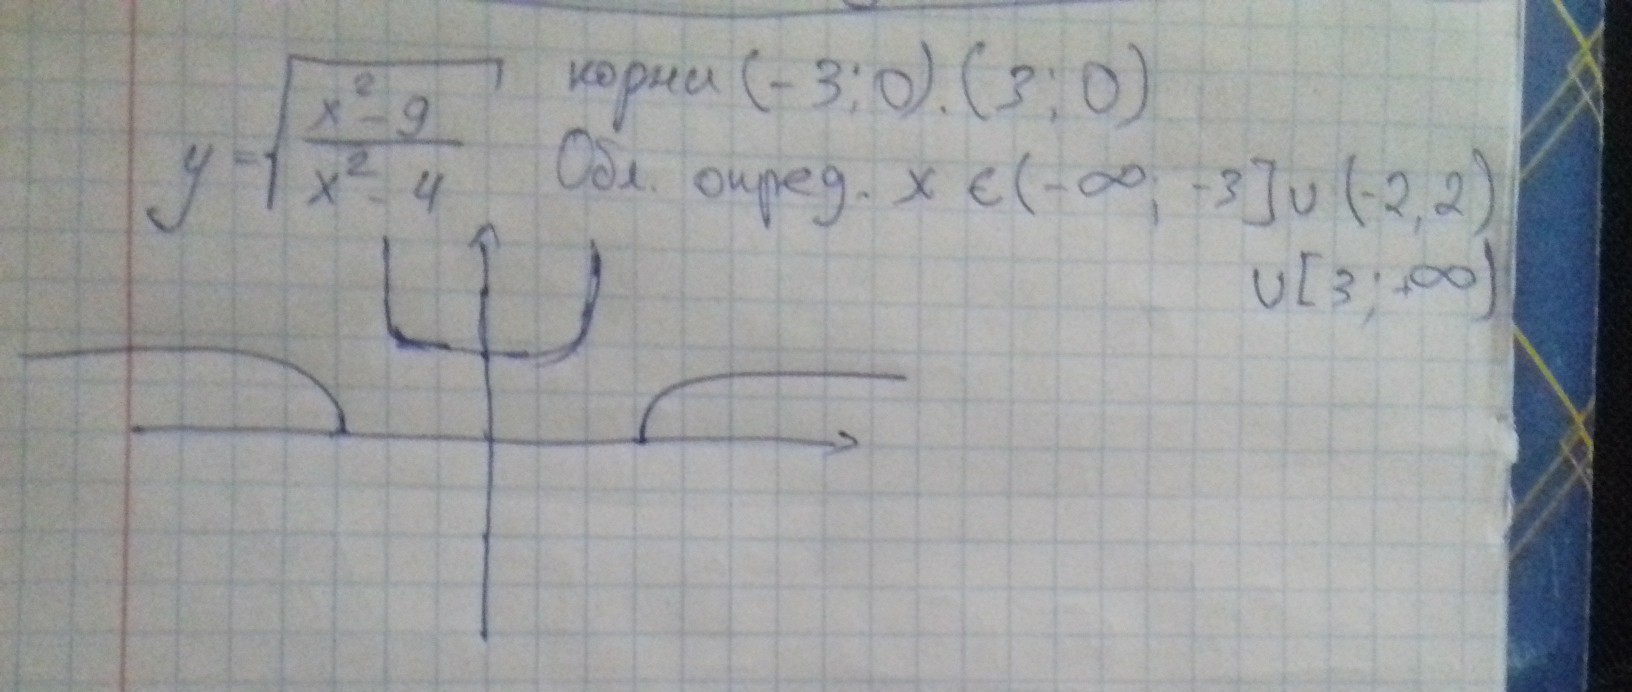 y = √((x² - 9)/(x² - 4)) корни (-3; 0). (3; 0)
Обл. опред. x ∈ (-∞; -3] ∪ (-2, 2)
∪ [3; +∞)